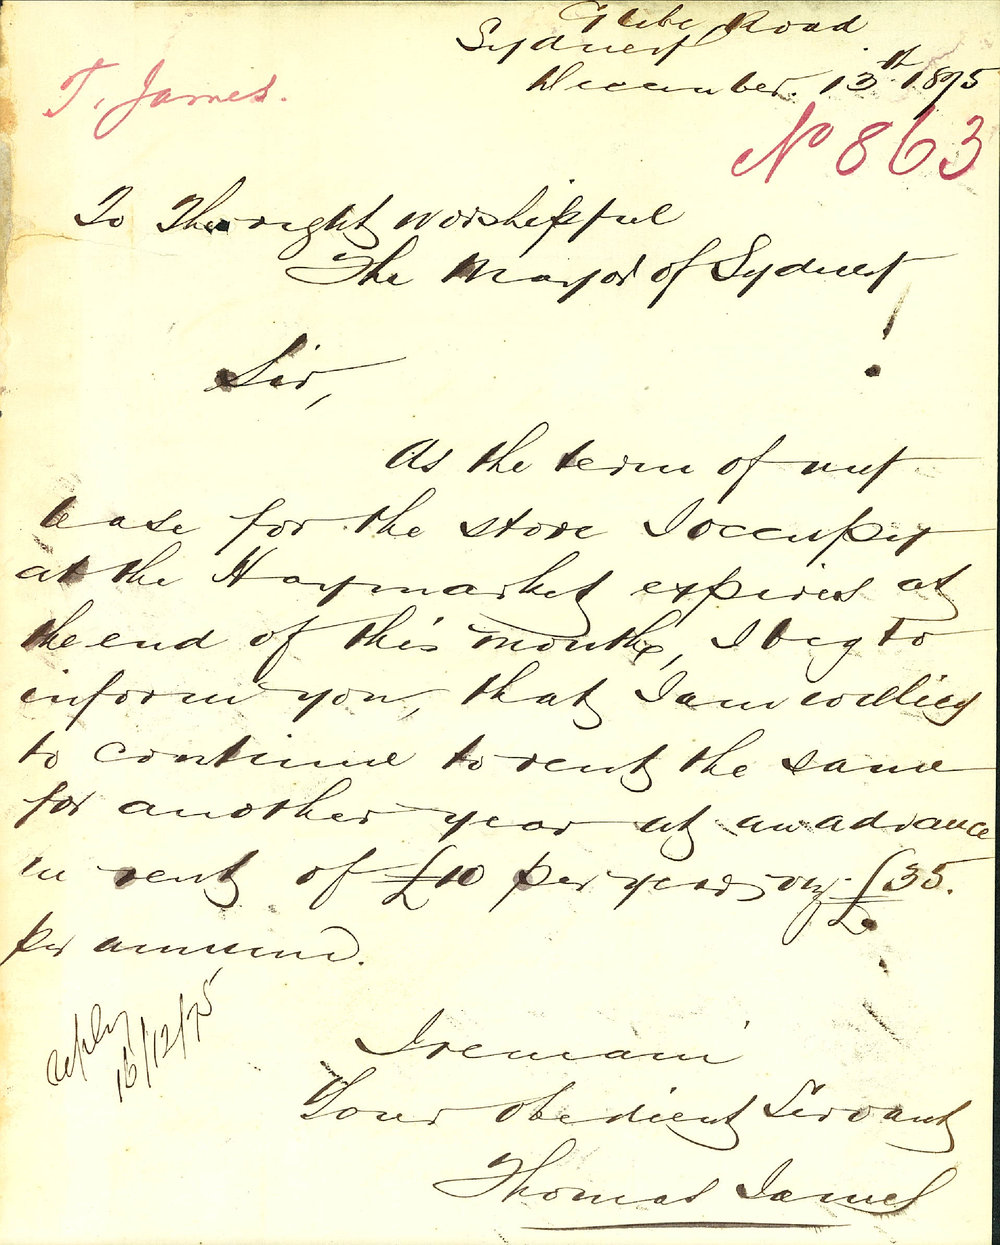 Glebe Road
Sydney
December. 13th 1875
T. James.
No 863
To The right worshipful
The Mayor of Sydney
Sir,
As the term of my
lease for the store I occupy
at the Haymarket expires at
the end of this month, I beg to
inform you, that I am willing
to continue to rent the same
for another year at an advance
in rent of £10 per year, or £35.
per annum.
reply
16/12/75
I remain
Your obedient Servant
Thomas James